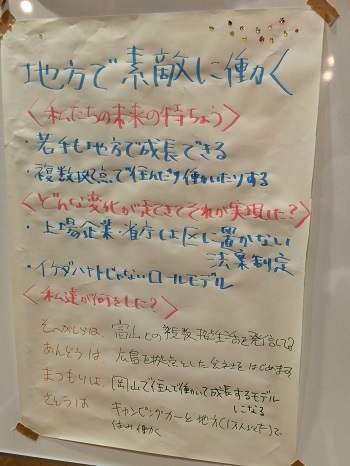 地方で素敵に働く
<私たちの未来の特ちょう>
・若手も地方で成長できる
・複数拠点で住んだり働いたりする
<どんな変化が起きてそれが実現した?>
・上場企業・省庁は区に置かない
法案制定
・イケダハヤトじゃないロールモデル
<私達が何をした?>
は、富山との複数拠点生活を発信してる
あんどうは、広島を拠点とした をはじめます
まつもりは、岡山で住んで働いて成長するモデル
になる
さとうは キャンピングカーと地方(1万人以下)で
住み働く